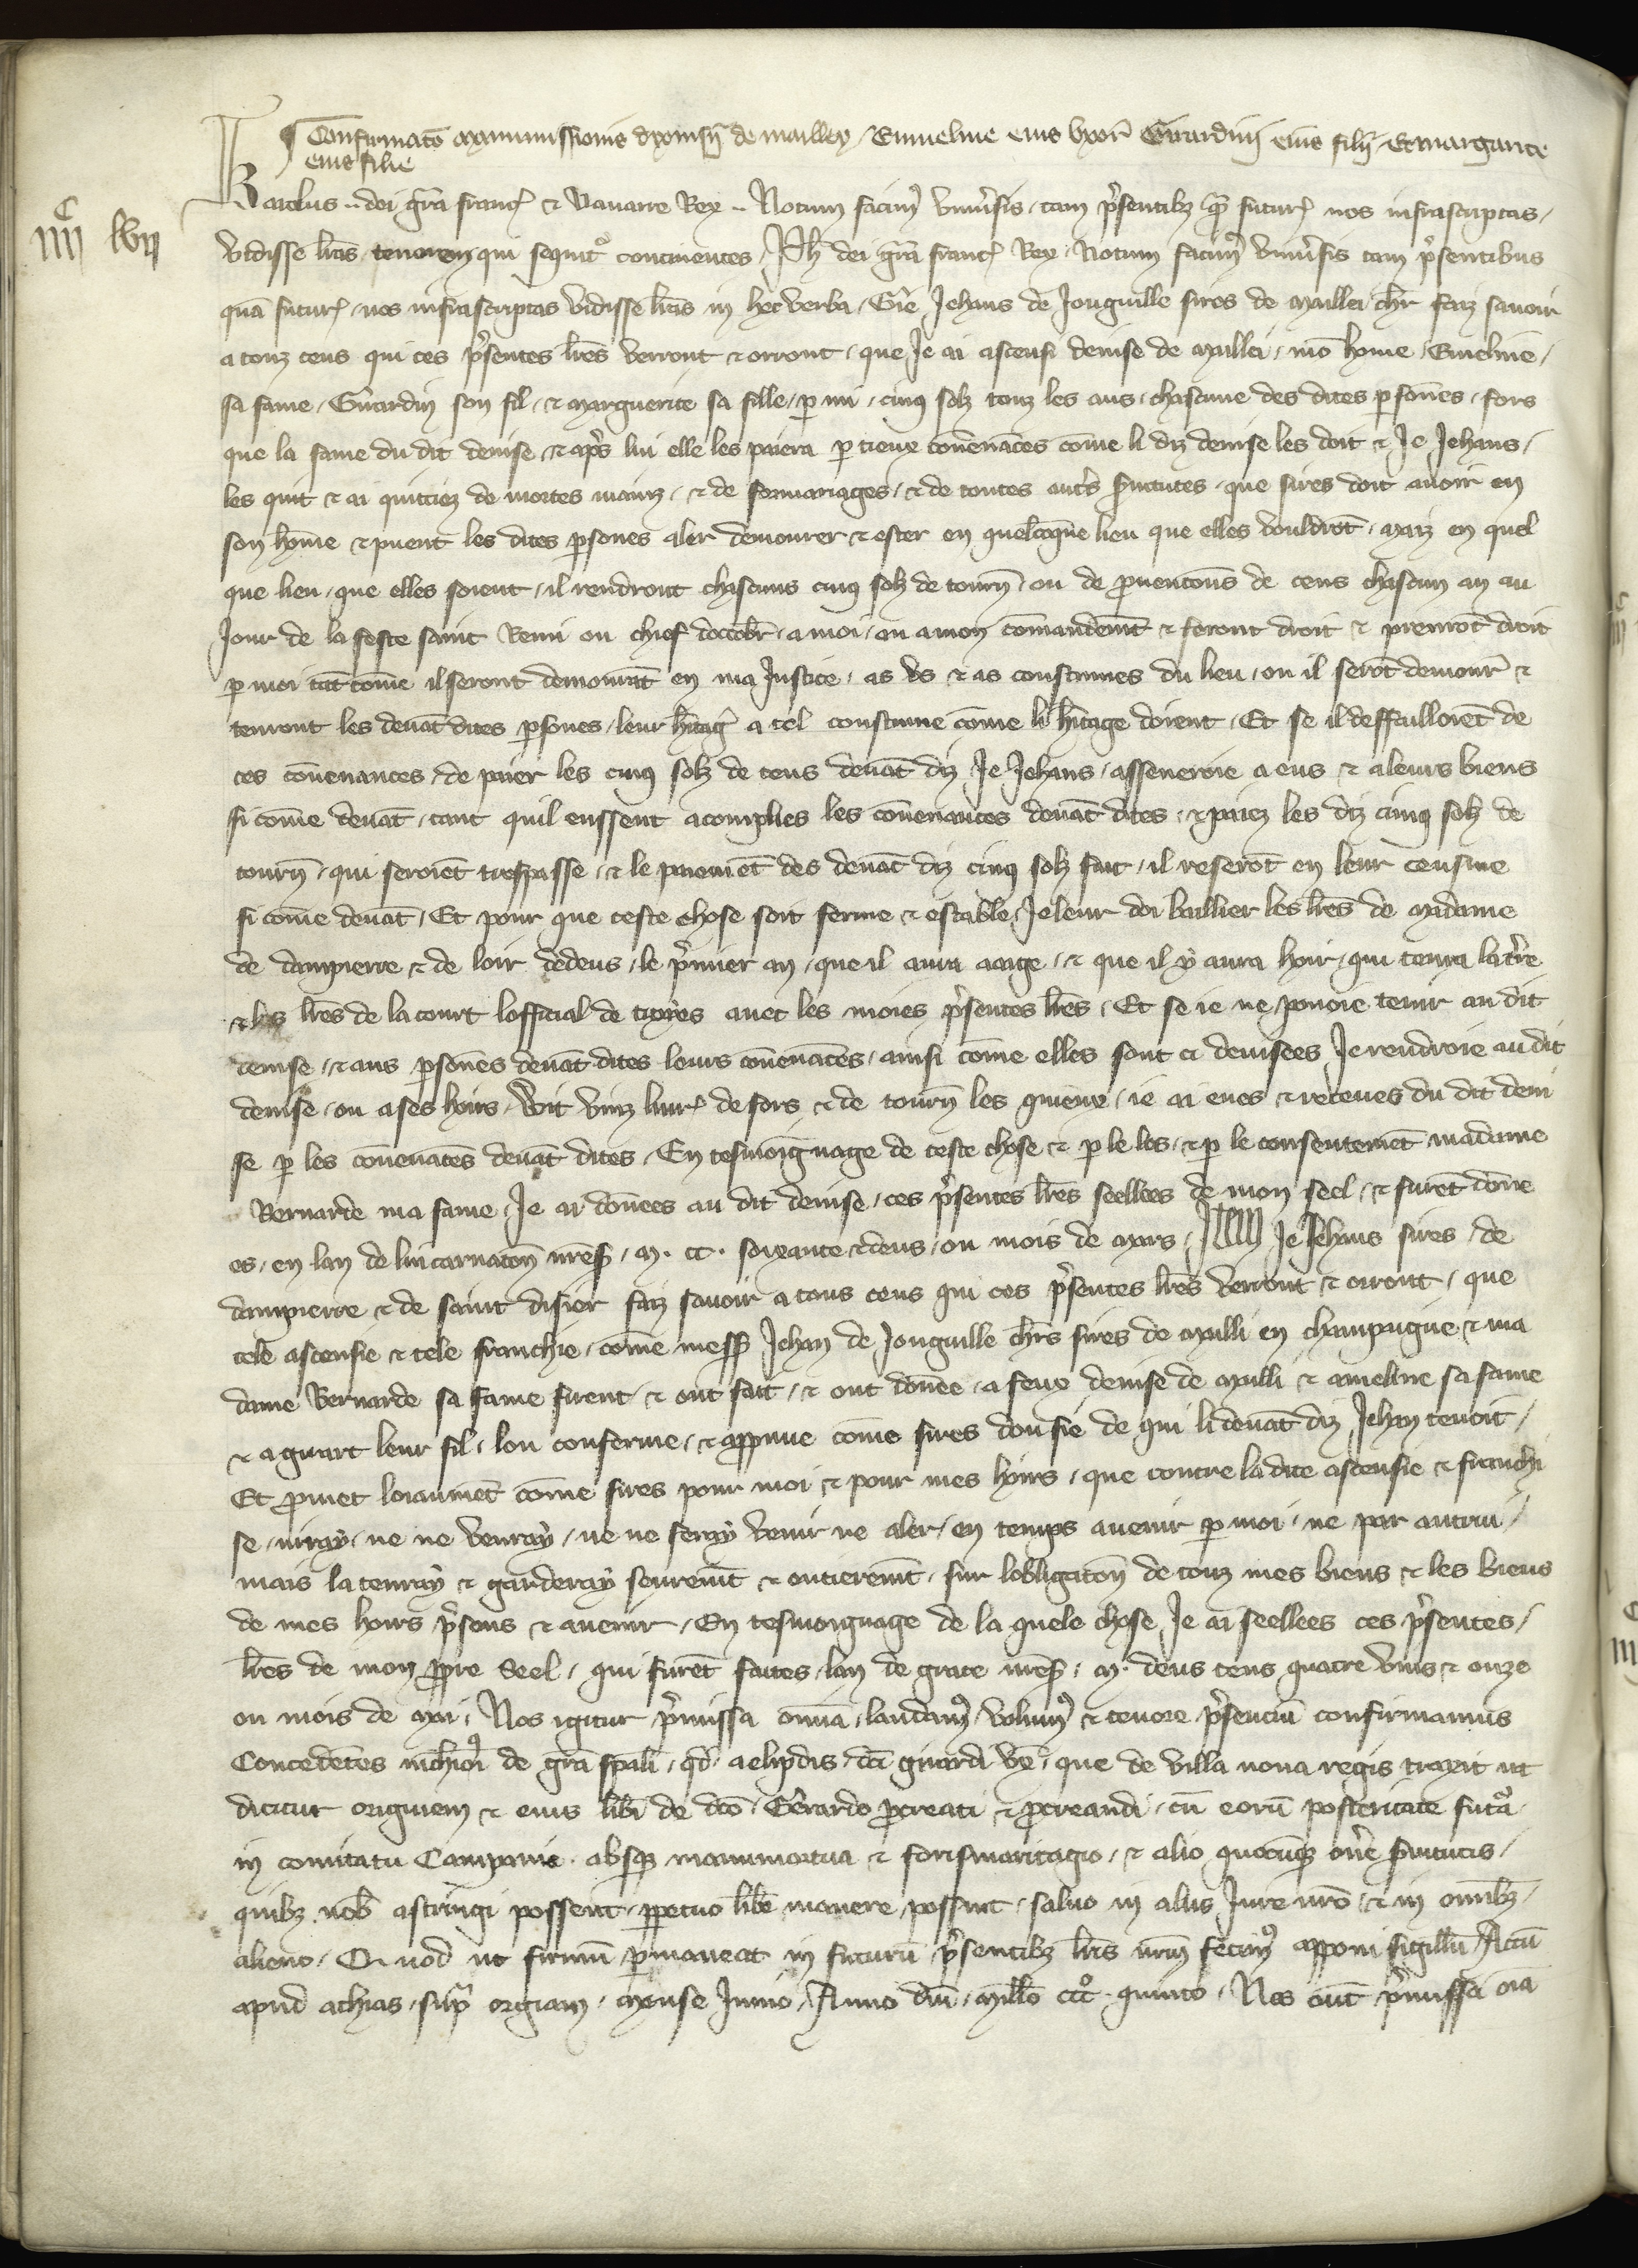 Confirmatio Manumissionis dyonisii de mailley Emmeline eius uxoris Girardini eius filii Et margarite
eius filie
IIIIc LVII
Karolus dei gra franc̃ et Navarre Rex Notum facimus universis tam presentibus quam futuris nos infrascriptas
vidisse lrãs tenorem qui sequitur continentes Ph dei gra franc̃ Rex Notum facimus universis tam presentibus
quam futuris nos infrascriptas vidisse lrãs in hec verba Gie Jehans de Jonguille sires de Mallei chlr faiz savoir
a touz ceus qui ces presentes lrẽs verront et orront que Je ai ascensi denise de Mallei mon home Emeline
sa fame Girardin son fil et Marguerite sa fille par mi cinq solz touz les ans chascune des dites persones fors
que la fame du dit denise et apres lui elle les paiera par tieux convenances come li diz denise les doit et Je Jehans
les quit et ai quittiez de mortes mains et de formariages et de toutes autres servitutes que sires doit avoir en
son home et puent les dites persones aler demourer et ester en quelconque lieu que elles vouldront Maiz en quel
que lieu que elles soient il rendront chascuns cinq solz de tourn̄ ou de provenicens de cens chascun an au
Jour de la feste saint Remi ou chief doctobre a moi ou a mon comandement et feront droit et prenront droit
par moi tant come il seront demorant en ma Justice as us et as coustumes du lieu ou il seront demourer et
tenront les devant dites persones leur heritage a tel coustume come li heritage doient Et se il deffailloient de
ces convenances de paier les cinq solz de cens devant diz Je Jehans asseneroie a eus et a leurs biens
si come devant tant quil eussent acomplies les convenances devant dites et paiez les diz cinq solz de
tourn̄ qui seroient trespasse et le paiement des devant diz cinq solz fait il reseront en leur censive
si come devant Et pour que ceste chose soit ferme et estable Je leur doi baillier les lrẽs de Madame
de dampierre et de loir dedens le premier an que il aura aage et que il y aura hoir qui tenra la terre
et les lrẽs de la court lofficial de troyes avec les moies presentes lrẽs Et se ie ne pouoie tenir au dit
denise et aus persones devant dites leurs convenances ainsi come elles sont ci devisees Je rendroie au dit
denise ou a ses hoirs Wit vinz livres de fors et de tourn̄ les quieux ie ai eues et receues du dit deni
se par les convenances devant dites En tesmoingnage de ceste chose et par le los et par le consentement madame
Bernarde ma fame Je ai donees au dit denise ces presentes lrẽs seellees de mon seel et furent done
es en lan de lincarnation nres̃ M. cc. soixante et deus ou mois de Mars Je Jehans sires de
dampierre et de saint disier faiz savoir a tous ceus qui ces presentes lrẽs verront et orront que
tele ascensie et tele franchie come mess Jehan de Jonguille chlrs sires de Malli en champaigne et ma
dame Bernarde sa fame firent et ont fait et ont donee a feux denise de Malli et ameline sa fame
et a girart leur fil lou conferme et appruue come sires dou fie de qui li devant diz Jehan tenoit
Et promet loiaument come sires pour moi et pour mes hoirs que contre la dite ascensie et franchi
se niray ne ne venray ne ne feray venir ne aler en temps avenir par moi ne par autrui
mais la tenray et garderay seurement et entierement sur lobligation de touz mes biens et les biens
de mes hoirs presens et avenir En tesmoignage de la quele chose Je ai seellees ces presentes
lrẽs de mon propre Seel qui furent faites lan de grace nres̃ M. deus cens quatre vins et onze
ou mois de Mai Nos igitur premissa omnia laudamus volumus et tenore presencium confirmamus
Concedentes nichilominus de gra spali quod aelipdis dicti girardi ux̃ que de villa nova regis traxit ut
dicitur originem et eius liberi de dicto Gerardo procreati et procreandi cum eorum posteritate futura
in comitatu Campanie absque manumortua et forismaritagio et alio quocumque onere servitutis
quibus nobis astringi possent perpetuo libere manere possint salvo in aliis Jure nostro et in omnibus
alieno Quod ut firmum permaneat in futurum presentibus lris nostrum fecimus apponi sigillum Actum
apud athias supra orgiam Mense Junio Anno dni millo CCCo quinto Nos autem premissa omnia